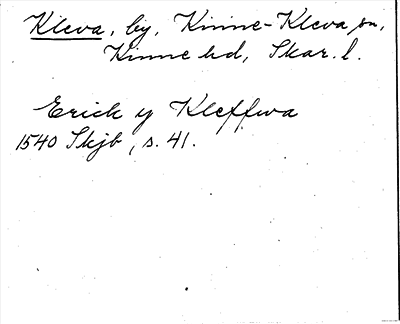 Kleva, by, Kinne-Kleva sn,
Kinne hd, Skar. l.
Erick y Kleffwa
1540 Skjb, s. 41.